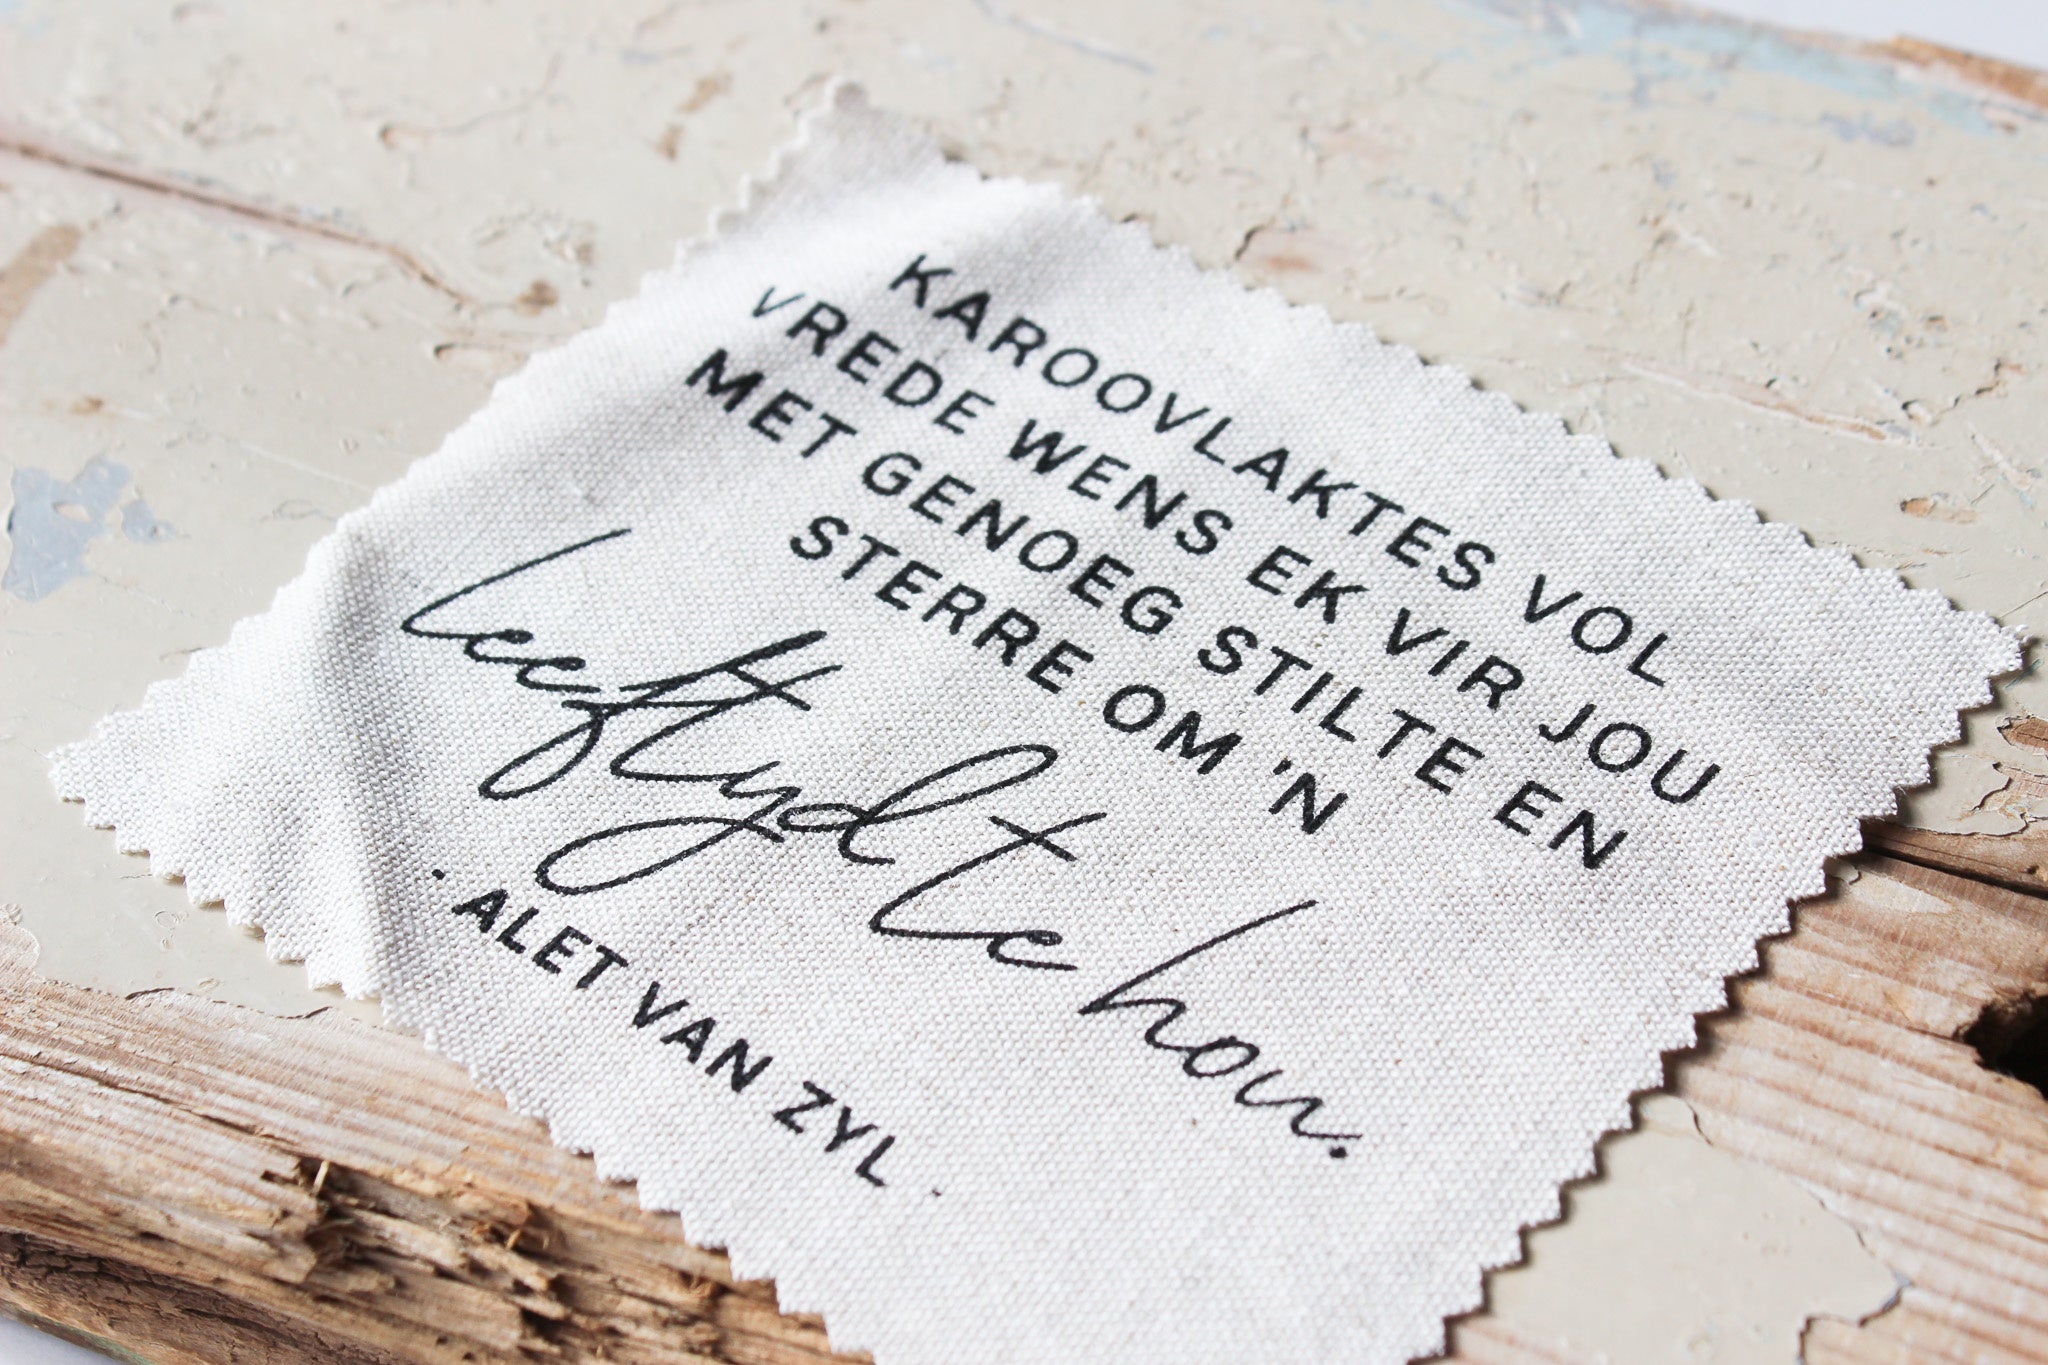 KAROOVLAKTES VOL
VREDE WENS EK VIR JOU
MET GENOEG STILTE EN
STERRE OM 'N
leeftyd te hou.
· ALET VAN ZYL ·